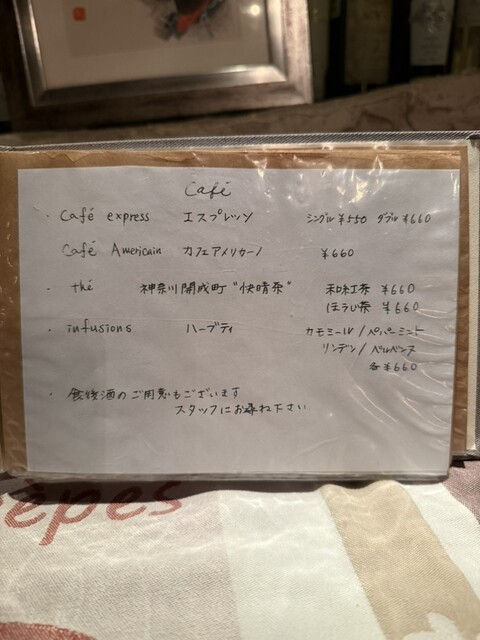 Café
・ Café express エスプレッソ シングル ¥550 ダブル ¥660
Café Americain カフェアメリカーノ ¥660
・ thé 神奈川開成町 "快晴茶" 和紅茶 ¥660
ほうじ茶 ¥660
・ infusions ハーブティ カモミール / ペパーミント
リンデン / ベルベンヌ
各 ¥660
・ 食後酒のご用意もございます
スタッフにお尋ね下さい
êpes